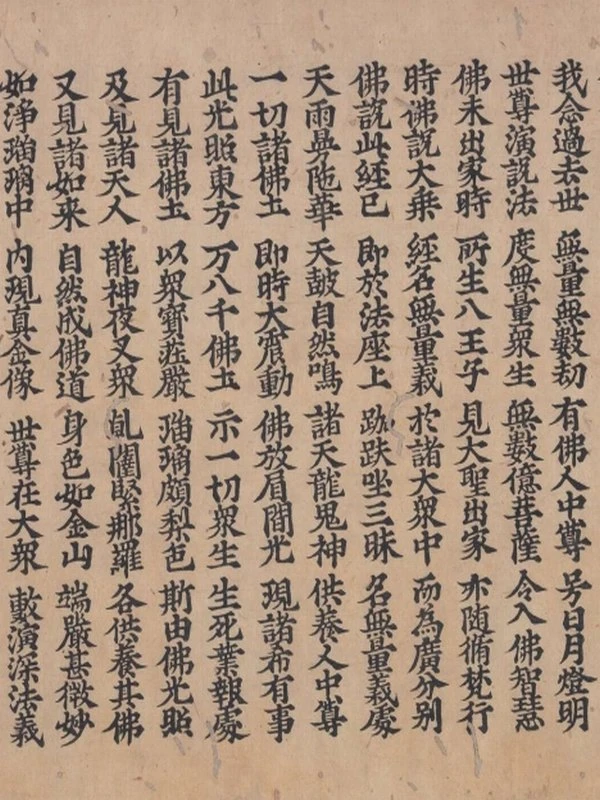 我念過去世 無量無數劫 有佛人中尊 号日月燈明
世尊演說法 度無量衆生 無數億菩薩 令入佛智慧
佛未出家時 所生八王子 見大聖出家 亦随脩梵行
時佛說大乗 經名無量義 於諸大衆中 而為廣分別
佛說此經已 即於法座上 跏趺坐三昧 名無量義處
天雨曼陁華 天皷自然鳴 諸天龍鬼神 供養人中尊
一切諸佛圡 即時大震動 佛放眉間光 現諸希有事
此光照東方 万八千佛圡 示一切衆生 生死業報處
有見諸佛圡 以衆寳莊嚴 瑠璃頗梨色 斯由佛光照
及見諸天人 龍神夜叉衆 乹闥緊那羅 各供養其佛
又見諸如来 自然成佛道 身色如金山 端嚴甚微妙
如淨瑠璃中 内現真金像 世尊在大衆 敷演深法義